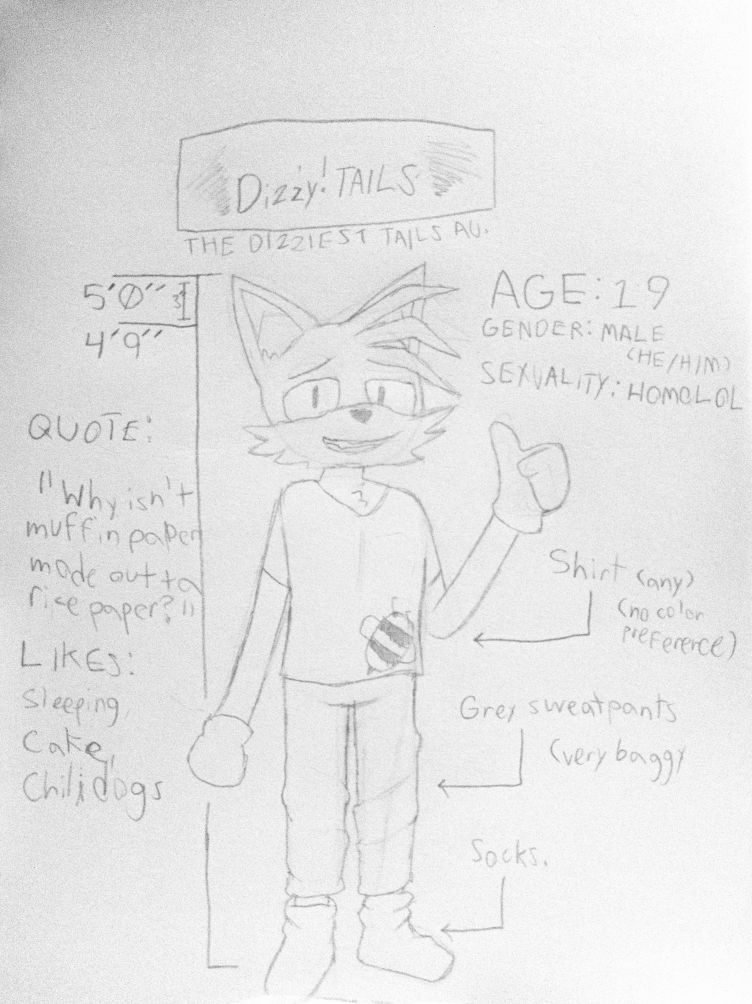 Dizzy! TAILS
THE DIZZIEST TAILS AU.
5'0"
3"
4'9"
AGE: 19
GENDER: MALE
(HE/HIM)
SEXUALITY: HOMOLOL
QUOTE:
"Why isn't
muffin paper
made outta
rice paper?"
LIKES:
Sleeping,
Cake,
Chilidogs
Shirt (any)
(no color
preference)
Grey sweatpants
(very baggy
Socks.